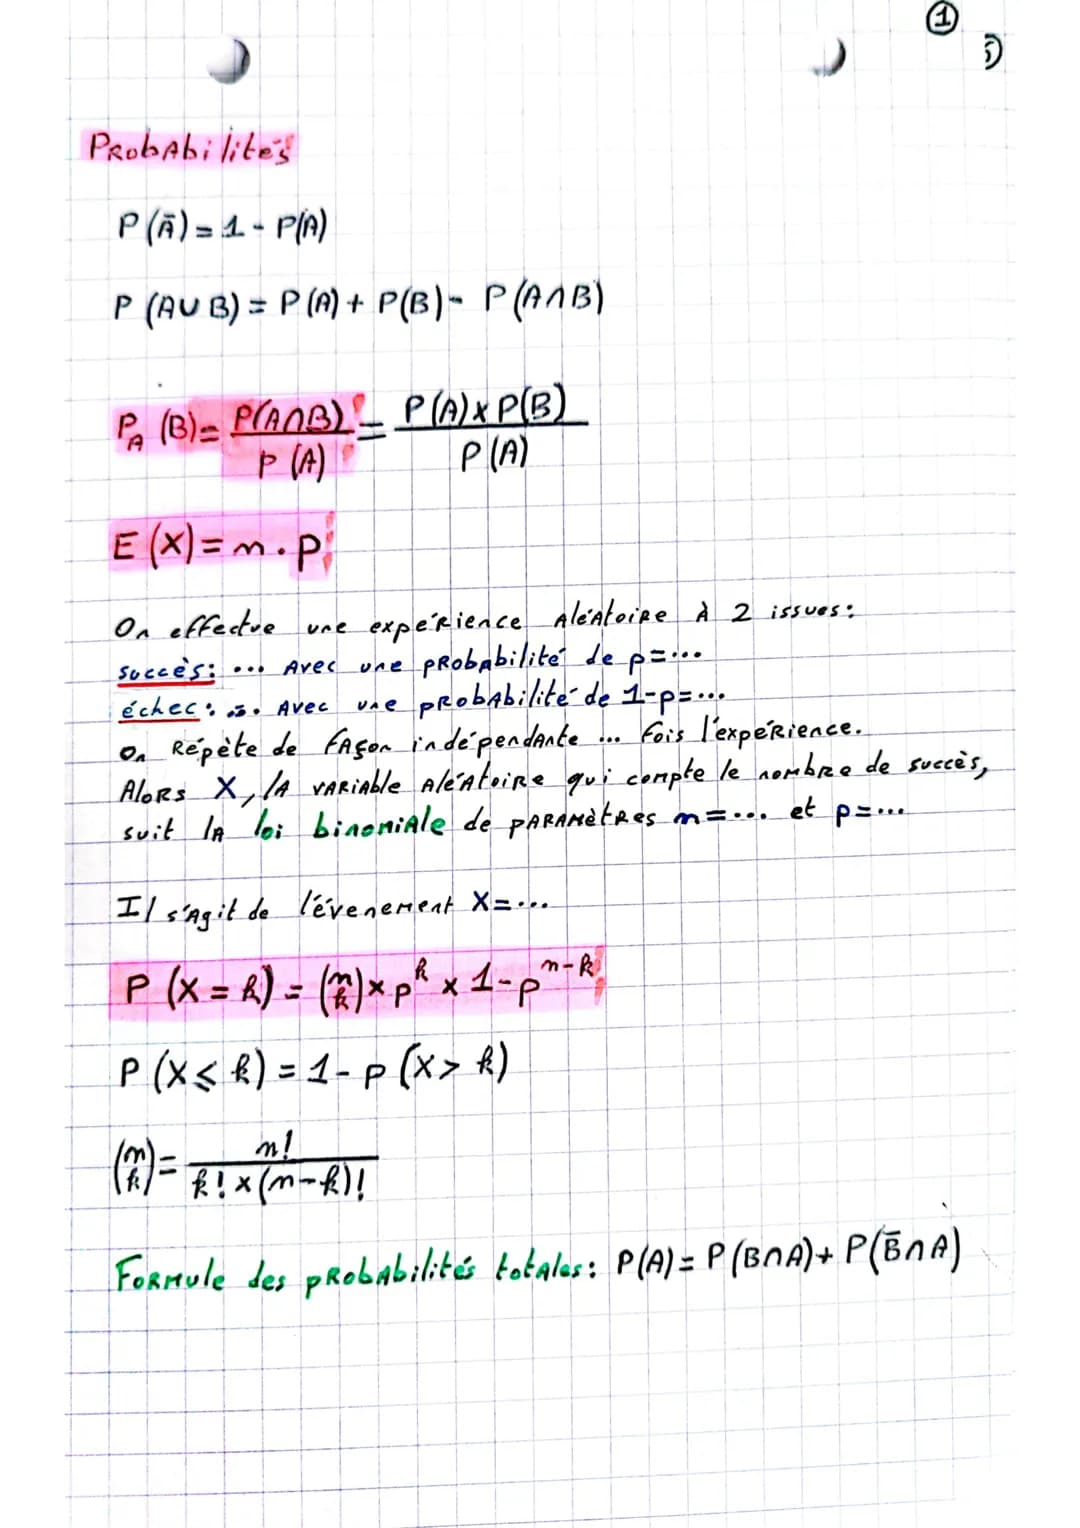 ①
Probabilités
P(Ā) = 1 - P(A)
P (A∪B) = P(A) + P(B) - P(A∩B)
P_A (B) = P(A∩B) / P(A) = P(A) x P(B) / P(A)
E(X) = n . p
On effectue une expérience aléatoire à 2 issues :
succès : ... avec une probabilité de p = ...
échec : ... avec une probabilité de 1-p = ...
on répète de façon indépendante ... fois l'expérience.
Alors X, la variable aléatoire qui compte le nombre de succès,
suit la loi binomiale de paramètres n = ... et p = ...
Il s'agit de l'évenement X = ...
P (X = k) = (n k) x p^k x 1-p^n-k
P (X ⩽ k) = 1 - p (X > k)
(n k) = n! / k! x (n-k)!
Formule des probabilités totales : P(A) = P(B∩A) + P(B̄∩A)